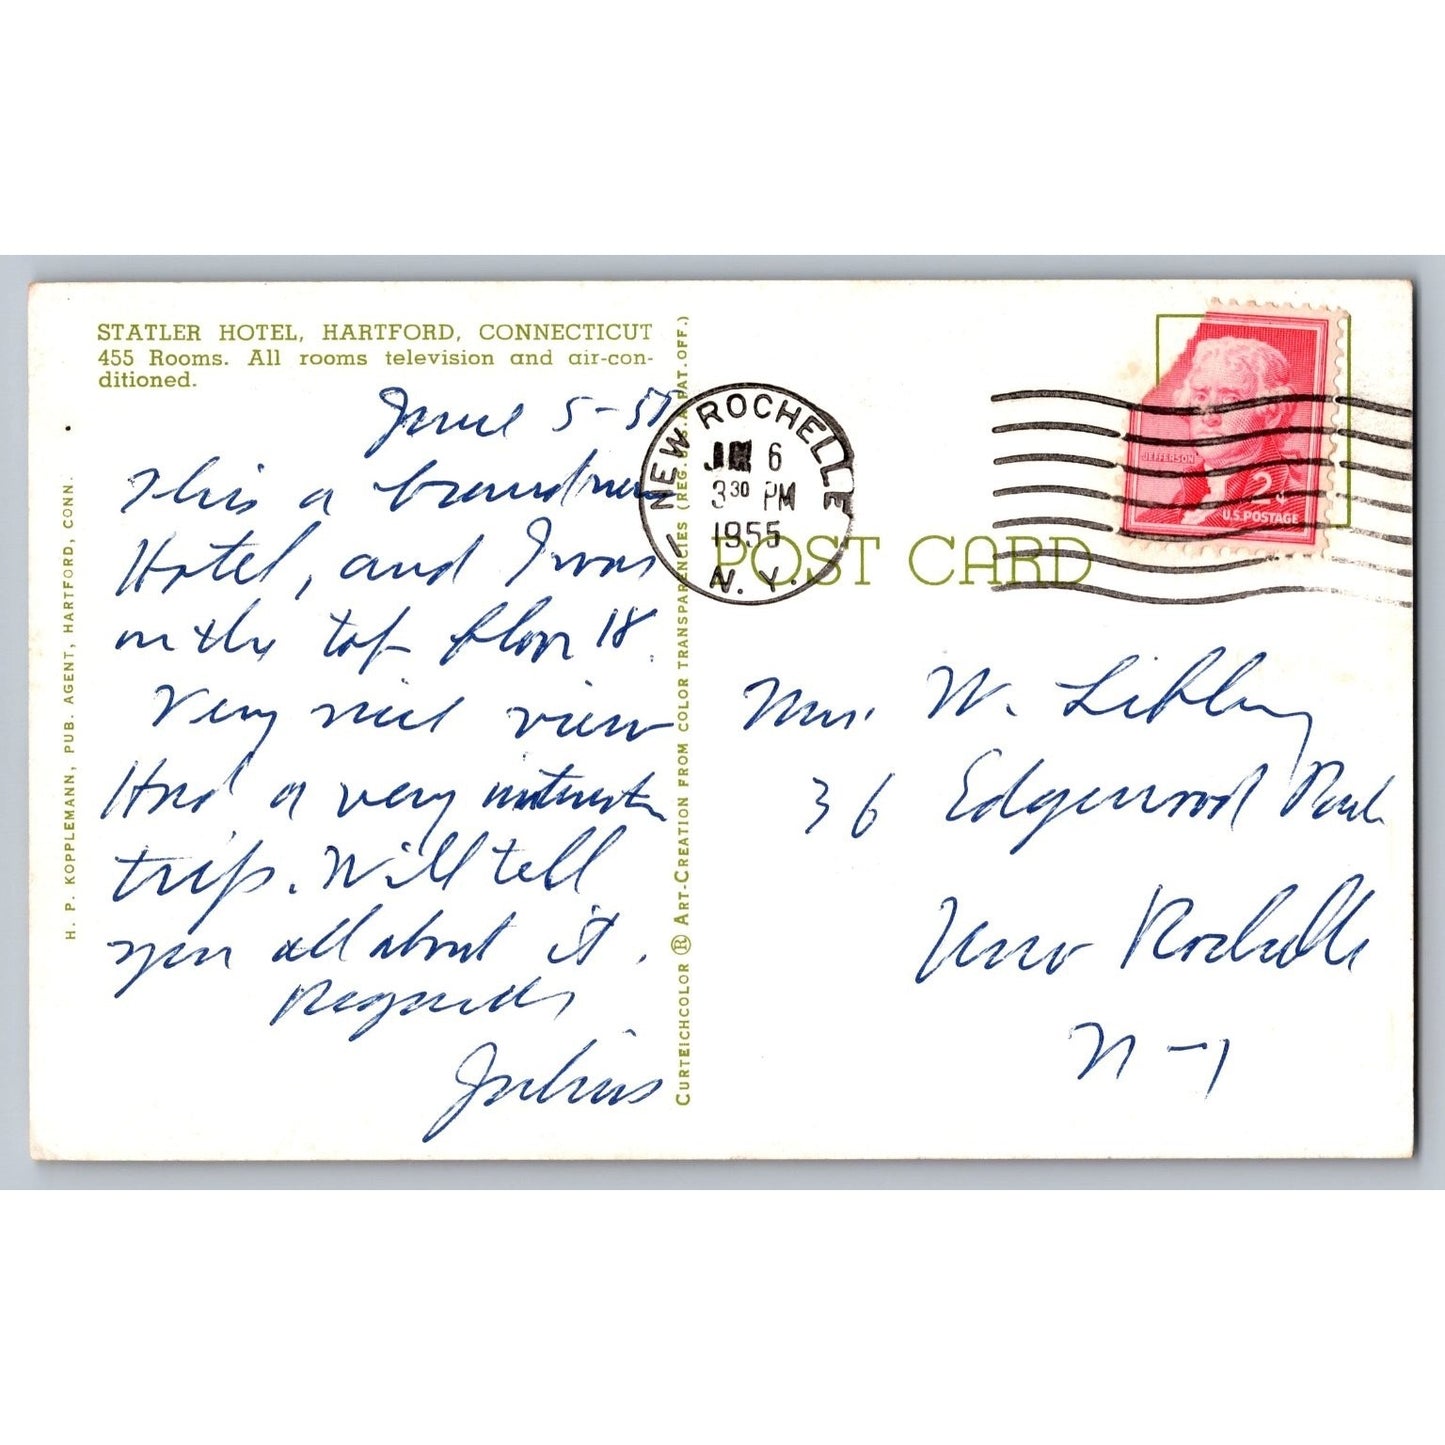 STATLER HOTEL, HARTFORD, CONNECTICUT
455 Rooms. All rooms television and air-con-
ditioned.
June 5-55
This a brandnew
Hotel, and I was
on the top floor 18.
Very nice view
Had a very interestin
trip. Will tell
you all about it.
Regards
Julius
H. P. KOPPLEMANN, PUB. AGENT, HARTFORD, CONN.
CURTEICHCOLOR ® ART-CREATION FROM COLOR TRANSPARENCIES (REG. U.S.A. PAT. OFF.)
NEW ROCHELLE
6
3 30 PM
1955
N. Y.
POST CARD
JEFFERSON
2¢
U.S. POSTAGE
Mrs. W.
36 Edgewood Park
New Rochelle
N-Y